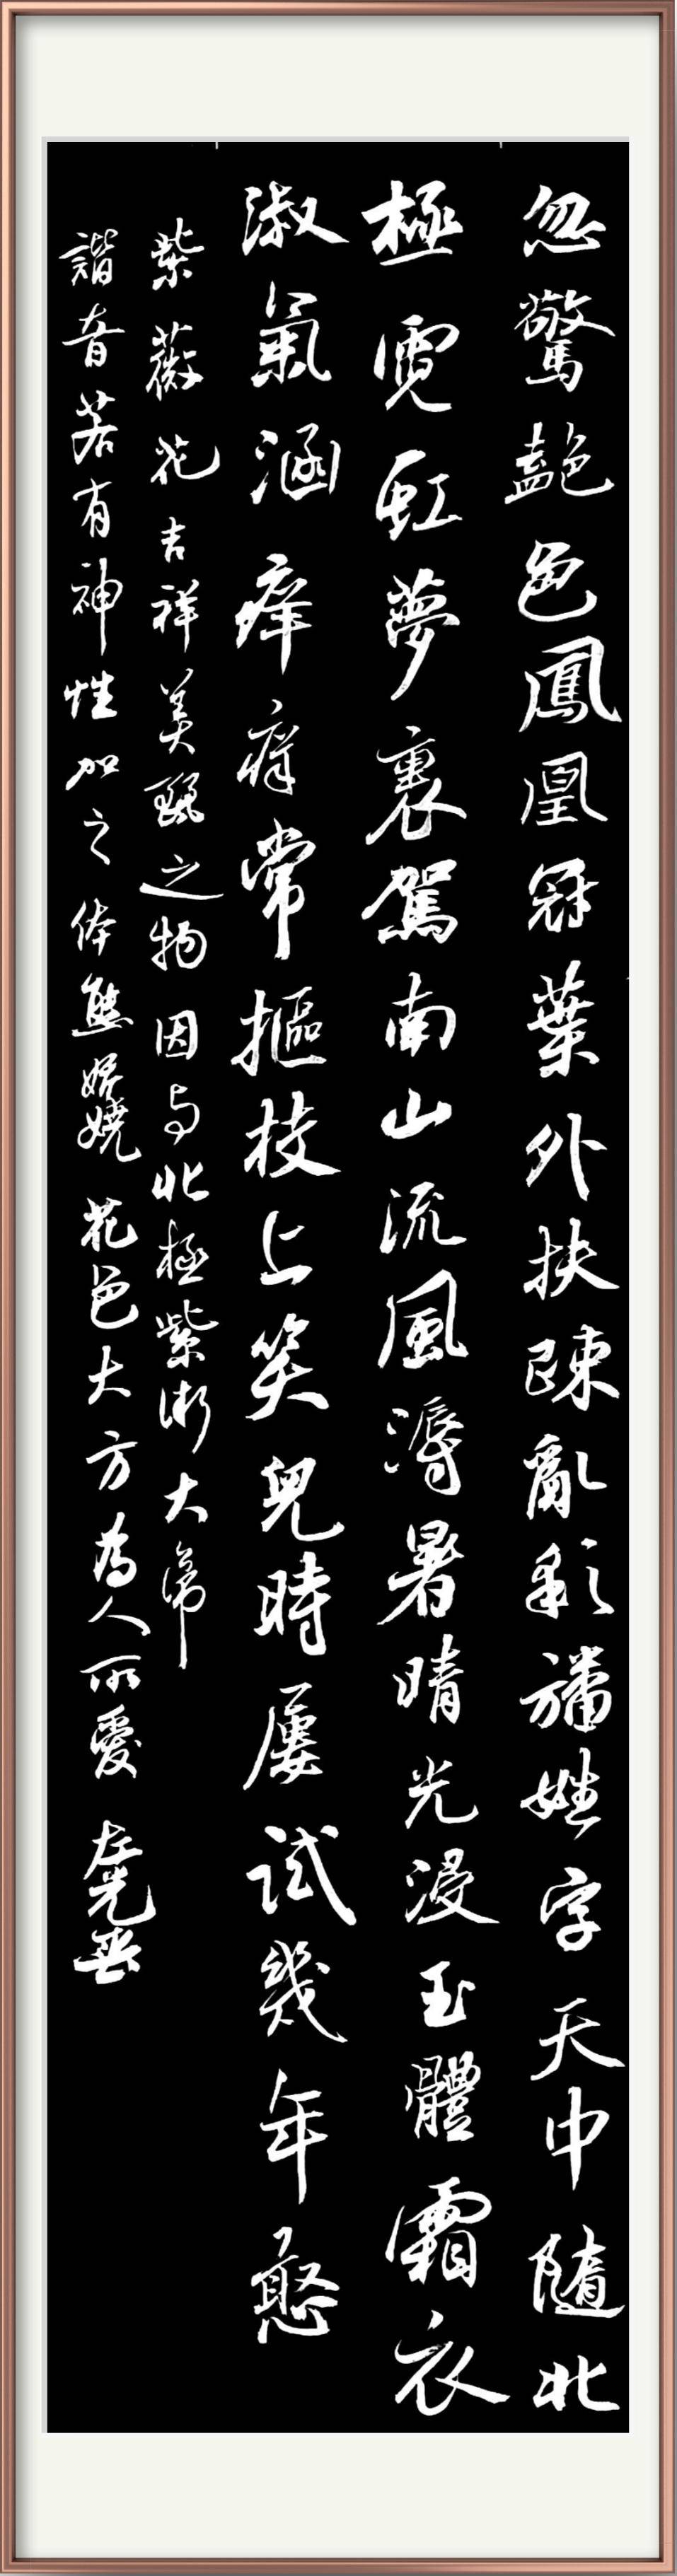 忽驚艷色鳳凰冠葉外扶疎亂彩旛姓字天中隨北
極霓虹夢裏駕南山流風溽暑晴光浸玉體霜衣
淑氣涵痒痒常摳枝上笑兒時屢試幾年憨
紫薇花吉祥美麗之物因与北極紫微大帝
諧音若有神性加之体態嬌嬈花色大方為人所愛